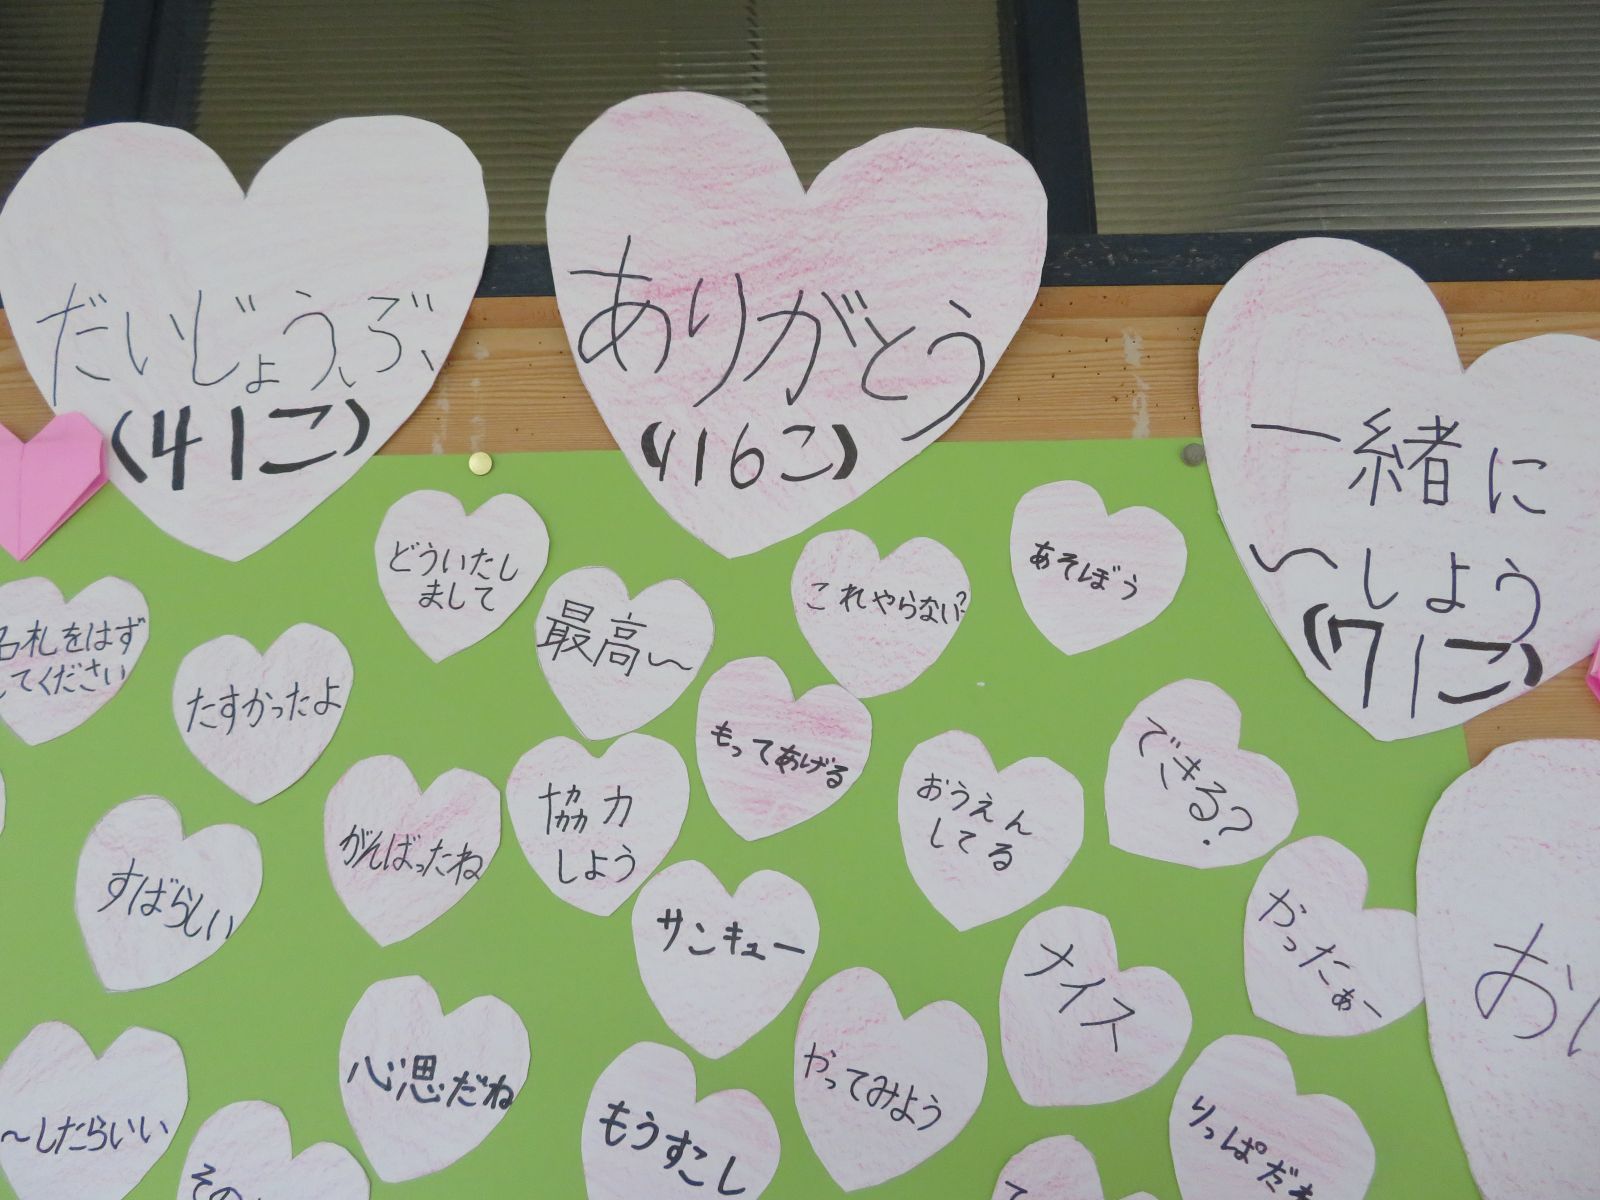 だいじょうぶ
(41こ)
ありがとう
(416こ)
一緒に
〜しよう
(71こ)
どういたし
まして
あそぼう
これやらない?
最高〜
名札をはず
してください
たすかったよ
もってあげる
できる?
おうえん
してる
協力
しよう
がんばったね
すばらしい
サンキュー
かったぁー
ナイス
お
心思だね
やってみよう
もうすこし
〜したらいい
りっぱだね
その